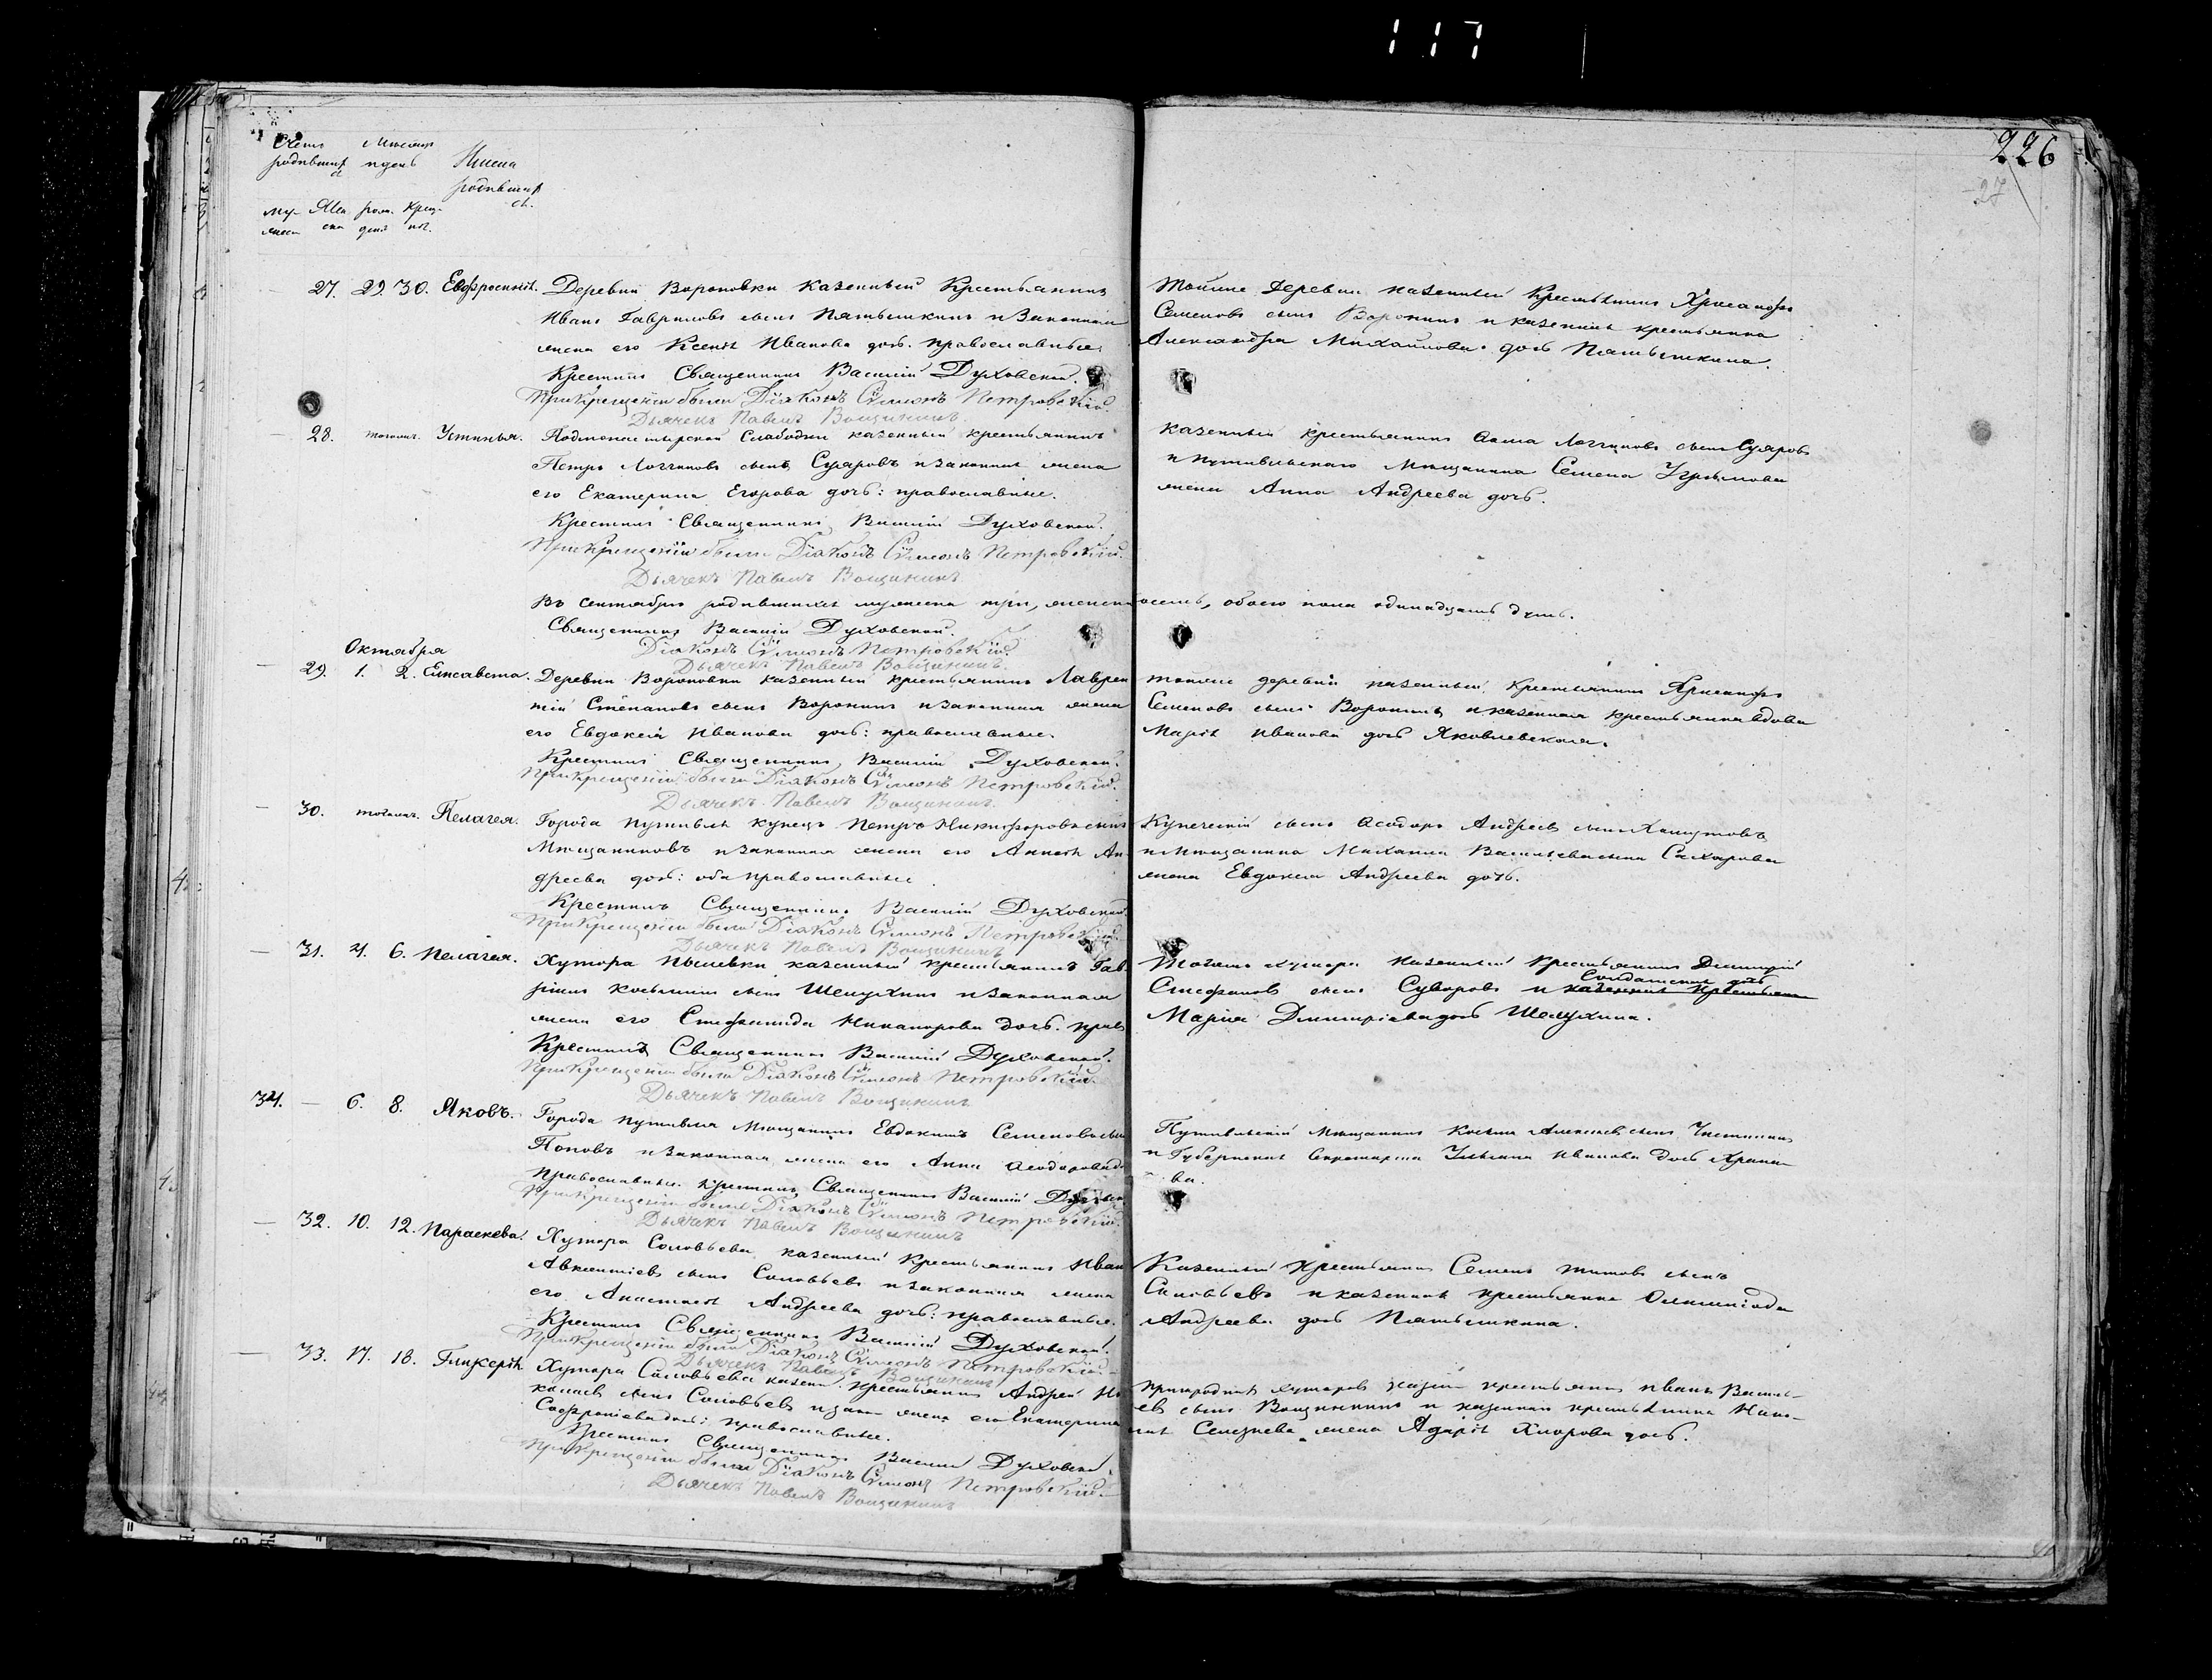 117
226
27
Счетъ родившихся
Мѣсяцъ и день
Имена родившихся.
Му- Жен рож. Крещ-
жеск ска дені нія.
27. 29. 30. Евфросинія. Деревни Вороновки казенный Крестьянинъ
Иванъ Гавриловъ сынъ Пятышкинъ и Законная
жена его Ксенія Иванова дочь. православные.
Крестилъ Священникъ Василій Духовской.
При крещеніи были Діаконъ Сѵмеонъ Петровскій.
Дьячекъ Павелъ Вощининъ.
Тойже деревни казенный Крестьянинъ Хрисанфъ
Семеновъ сынъ Воронинъ и казенная крестьянка
Александра Михайлова дочь Пятышкина.
28. тогожъ. Устинья. Подмонастырской Слабодки казенный крестьянинъ
Петръ Логгиновъ сынъ Суяровъ и законная жена
его Екатерина Егорова дочь: православные.
Крестилъ Священникъ Василій Духовской.
При крещеніи были Діаконъ Сѵмеонъ Петровскій.
Дьячекъ Павелъ Вощининъ
казенный крестьянинъ Логгиновъ сынъ Суяровъ
и путивльскаго Мѣщанина Семена
жена Анна Андреева дочь.
Въ Сентябрѣ родившихся мужеска три, женска восемь, обоего пола одинадцать душъ.
Священникъ Василій Духовской.
Діаконъ Сѵмеонъ Петровскій.
Дьячекъ Павелъ Вощининъ.
Октября
29. 1. 2. Елисавета. Деревни Вороновки казенный крестьянинъ Лаврен
тій Степановъ сынъ Воронинъ и законная жена
его Евдокія Иванова дочь: православные.
Крестилъ Священникъ Василій Духовской.
При крещеніи были Діаконъ Сѵмеонъ Петровскій.
Дьячекъ Павелъ Вощининъ.
тойже деревни казенный Крестьянинъ Хрисанфъ
Семеновъ сынъ Воронинъ и казенная крестьянка вдова
Марія Иванова дочь Яковлевская.
30. тогожъ. Пелагея. Города Путивля купецъ Петръ Никифоровъ сынъ
Мѣщаниновъ и законная жена его Аннѣя Ан-
дреева дочь: оба православные
Крестилъ Священникъ Василій Духовской.
При крещеніи были Діаконъ Сѵмеонъ Петровскій.
Дьячекъ Павелъ Вощининъ
Купеческій сынъ Ѳеодоръ Андреевъ сынъ
и мѣщанина Михаила Васильева сына Сахарова
жена Евдокія Андреева дочь.
31. 4. 6. Пелагея. Хутора казенный крестьянинъ Гав
рилъ Косьминъ сынъ Шелухинъ и законная
жена его Стефанида Никанорова дочь. прав
Крестилъ Священникъ Василій Духовской.
При крещеніи были Діаконъ Сѵмеонъ Петровскій.
Дьячекъ Павелъ Вощининъ
Тогожъ хутора казенный Крестьянинъ Димитрій
Стефановъ сынъ Суворовъ и казенная крестьянка
Солдатская дочь
Марія Димитріева дочь Шелухина.
34. — 6. 8. Яковъ. Города Путивля Мѣщанинъ Евдокимъ Семеновъ сынъ
Поповъ и законная жена его Анна Ѳеодорова д
Православные. Крестилъ Священникъ Василій Духовск
При крещеніи были Діаконъ Сѵмеонъ Петровскій.
Дьячекъ Павелъ Вощининъ
Путивльскій Мѣщанинъ Косьма Алексеевъ сынъ
и Губернская Секретарша Ульяна Иванова дочь
ва.
32. 10. 12. Параскева. Хутора Соловьева казенный Крестьянинъ Иван
Авксентіевъ сынъ Соловьевъ и законная жена
его Анастасія Андреева дочь: православные.
Крестилъ Священникъ Василій Духовской.
При крещеніи были Діаконъ Сѵмеонъ Петровскій.
Дьячекъ Павелъ Вощининъ
Казенный Крестьянинъ Семенъ Титовъ сынъ
Соловьевъ и казенная крестьянка Олимпіада
Андреева дочь Пятышкина.
33. 17. 18. Гликерія. Хутора Соловьева казен. крестьянинъ Андрей Ни
колаевъ сынъ Соловьевъ и закон жена его Екатерина
Софроніева дочь: православные.
Крестилъ Священникъ Василій Духовской
При крещеніи были Діаконъ Сѵмеонъ Петровскій.
Дьячекъ Павелъ Вощининъ
пригородныхъ хуторовъ крестьянинъ Иванъ Василь-
евъ сынъ Вощининъ и казенная крестьянина
Селезнева жена дочь.